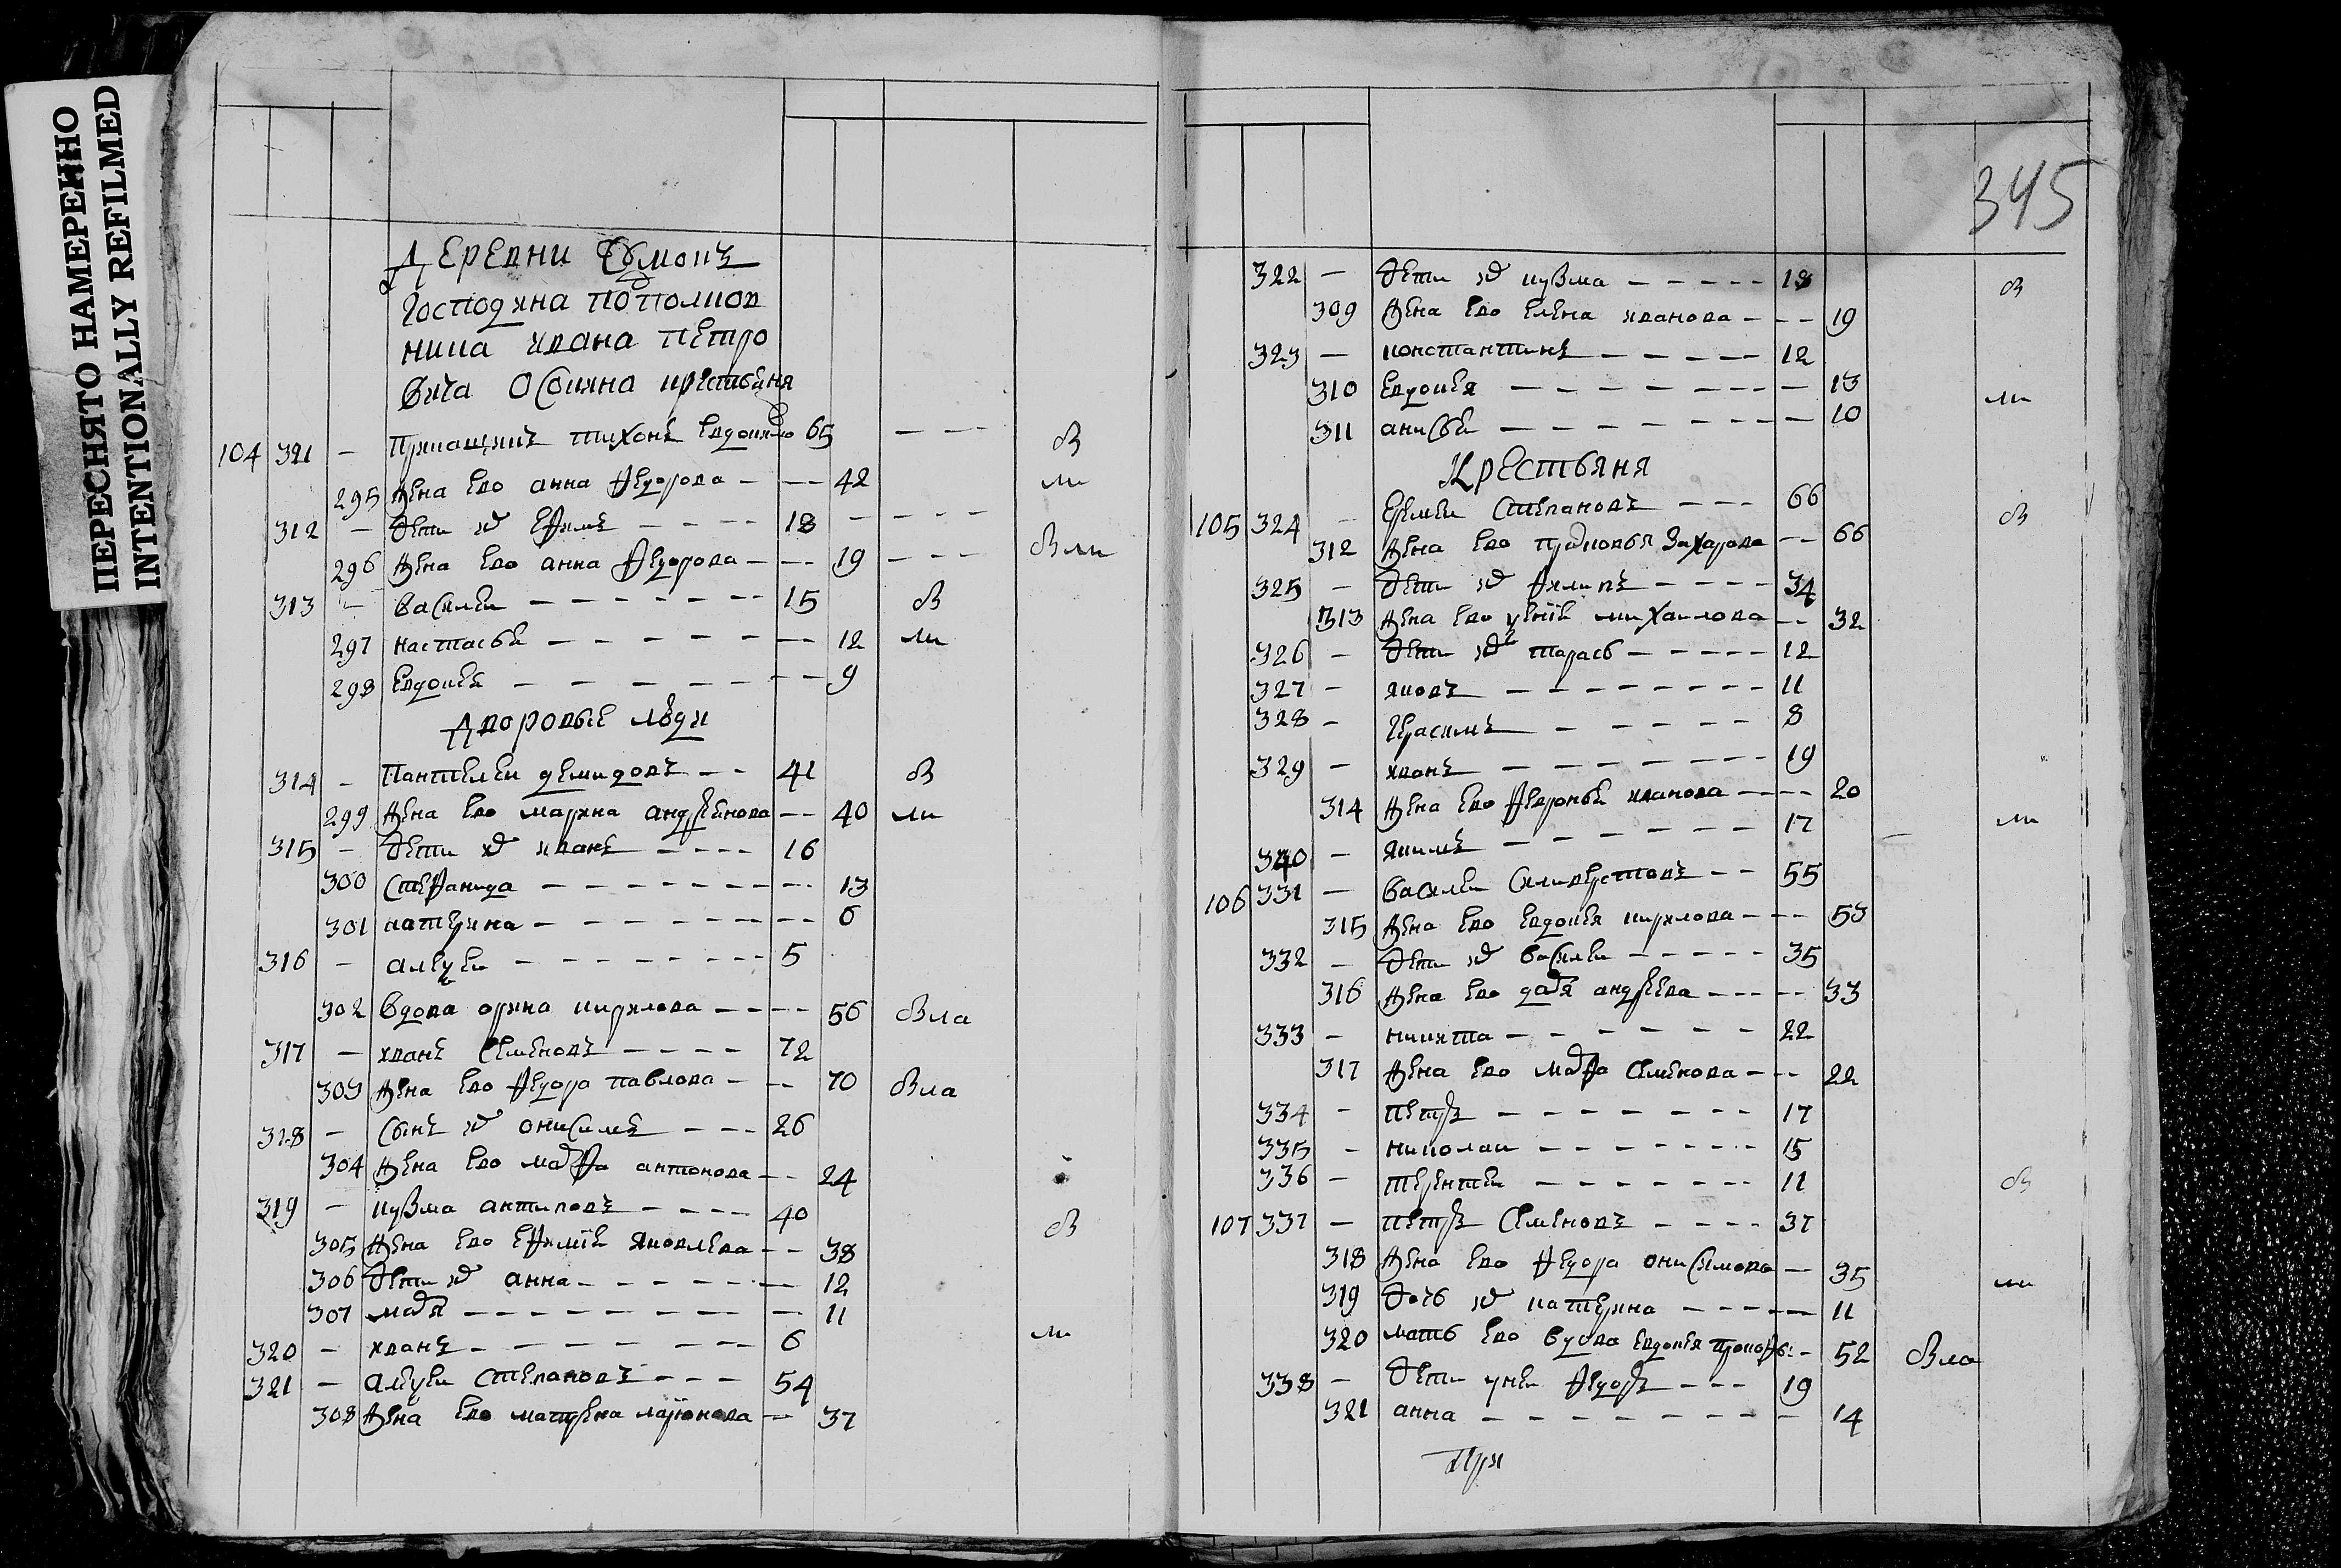 ПЕРЕСНЯТО НАМЕРЕННО
INTENTIONALLY REFILMED
345
Деревни
господина подполков
ника ивана петро
вича крестьяня
104 311 — прикащикъ тихонъ 65 — — — в
295 жена ево анна федорова — — 42 ми
312 — дети их ефимъ — — 18 — — —
296 жена ево анна федорова — — 19 — — —
313 — василеи — — 15 в
297 настасья — — 12 ми
298 евдокея — — 9
Дворовые люди
314 — Пантелеи демидовъ — — 41 в
299 жена ево марина андреянова — — 40 ми
315 — дети их иванъ — — 16
300 стефанида — — 13
301 катерина — — 6
316 — алеѯеи — — 5
302 вдова орина кирилова — — 56
317 — иванъ семеновъ — — 72
303 жена ево федора павлова — — 70
318 — сынъ их онисимъ — — 26
304 жена ево марфа антонова — — 24
319 — кузма антиповъ — — 40 в
305 жена ево яковлева — — 38
306 дети их анна — — 12
307 марья — — 11
320 — иванъ — — 6 ми
321 — алеѯеи степановъ — — 54
308 жена ево матрена ларионова — 37
322 — дети их кузма — — 18 в
309 жена ево елена иванова — — 19
323 — константинъ — — 12
310 евдокея — — 13 ми
311 анисья — — 10
Крестьяня
105 324 — еремеи степановъ — — 66 в
312 жена ево прасковья захарова — — 66
325 — дети их филипъ — — 34
313 жена ево михаилова — — 32
326 — дети их тарасъ — — 12
327 — яковъ — — 11
328 — герасимъ — — 8
329 — иванъ — — 19
314 жена ево февронья иванова — — 20 ми
330 — якимъ — — 17
106 331 — василеи силиверстовъ — — 55
315 жена ево евдокея кирилова — — 53
332 — дети их василеи — — 35
316 жена ево дарья андреева — — 33
333 — никита — — 22
317 жена ево марфа семенова — — 22
334 — петръ — — 17
335 — николаи — — 15
336 — терентеи — — 11 в
107 337 — петръ семеновъ — — 37
318 жена ево федора онисимова — 35 ми
319 дочь их катерина — — 11
320 мать ево вдова евдокея — 52
338 — дети у неи федоръ — — 19
321 анна — — 14